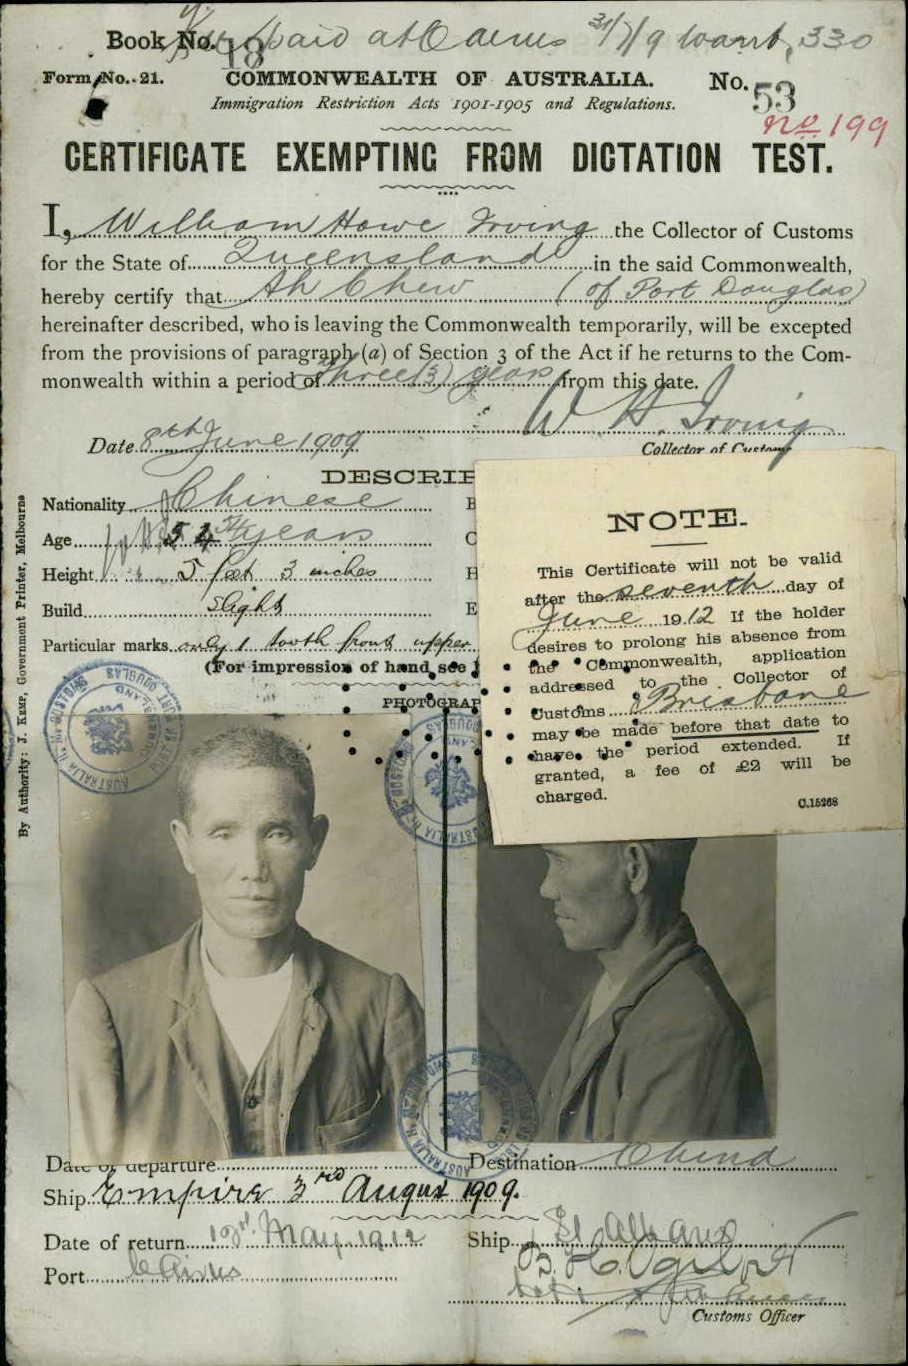 Book No. 18 paid at Cairns 31/7/9 Warrt, 330
Form No. 21. COMMONWEALTH OF AUSTRALIA. No. 53
Immigration Restriction Acts 1901-1905 and Regulations.
No 199
CERTIFICATE EXEMPTING FROM DICTATION TEST.
I, William Howe Irving the Collector of Customs
for the State of Queensland in the said Commonwealth,
hereby certify that Ah Chew (of Port Douglas)
hereinafter described, who is leaving the Commonwealth temporarily, will be excepted
from the provisions of paragraph (a) of Section 3 of the Act if he returns to the Com-
monwealth within a period of Three (3) years from this date.
W. H. Irving
Date 8th June 1909
Collector of Customs
DESCRIP
Nationality Chinese
Age 54 years
Height 5 feet 3 inches
Build Slight
Particular marks only 1 tooth front upper
(For impression of hand see
PHOTOGRAP
By Authority: J. KEMP, Government Printer, Melbourne
NOTE.
This Certificate will not be valid
after the seventh day of
June 1912 If the holder
desires to prolong his absence from
the Commonwealth, application
addressed to the Collector of
Customs Brisbane
may be made before that date to
have the period extended. If
granted, a fee of £2 will be
charged.
C.15268
Date of departure
Destination China
Ship Empire 3rd August 1909.
Date of return May 1912
Ship St Albans
Port Cairns
Customs Officer